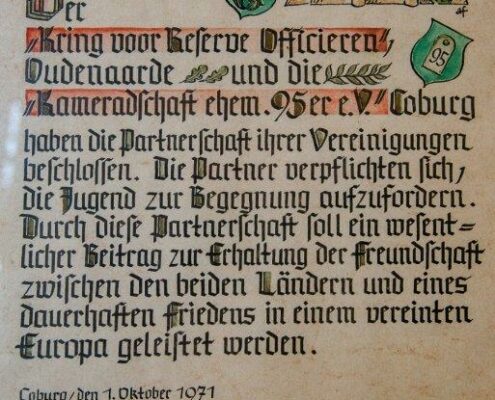 Der
„Kring voor Reserve Officieren",
Oudenaarde und die
„Kameradschaft ehem. 95er e.V." Coburg
95
haben die Partnerschaft ihrer Vereinigungen
beschlossen. Die Partner verpflichten sich,
die Jugend zur Begegnung aufzufordern.
Durch diese Partnerschaft soll ein wesent=
licher Beitrag zur Erhaltung der Freundschaft
zwischen den beiden Ländern und eines
dauerhaften Friedens in einem vereinten
Europa geleistet werden.
Coburg, den 1. Oktober 1971